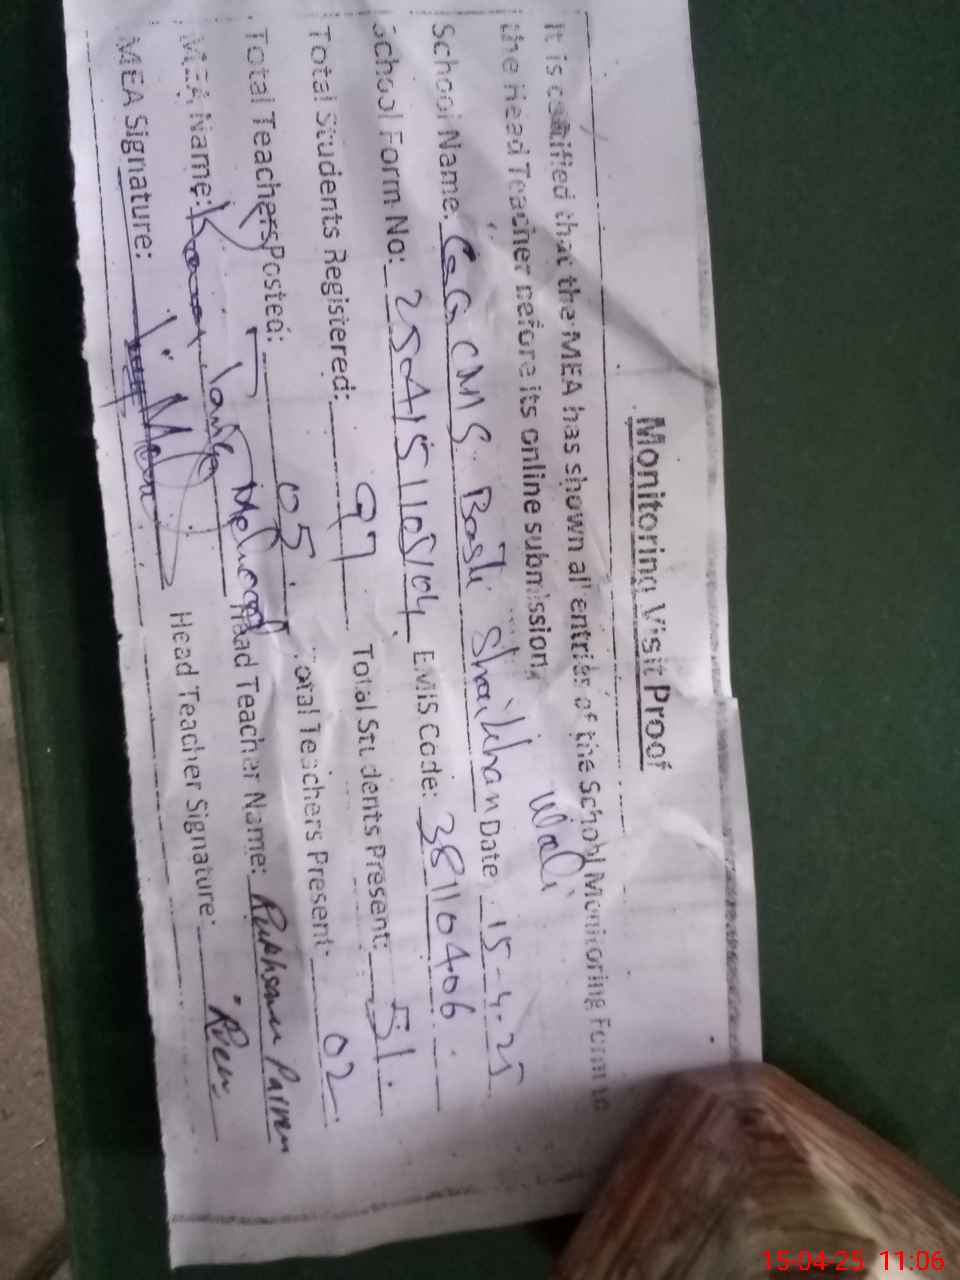 Monitoring Visit Proof
It is certified that the MEA has shown all entries of the School Monitoring Form to
the Head Teacher before its online submission.
School Name: GGCMS Basti Shaikhan Wali Date 15-4-25
School Form No: EMIS Code: 38110406
Total Students Registered: 97 Total Students Present: 51
Total Teachers Posted: 05 Total Teachers Present: 02
MEA Name: Mehmood Head Teacher Name: Rukhsana Parveen
MEA Signature: Head Teacher Signature:
15-04-25 11:06